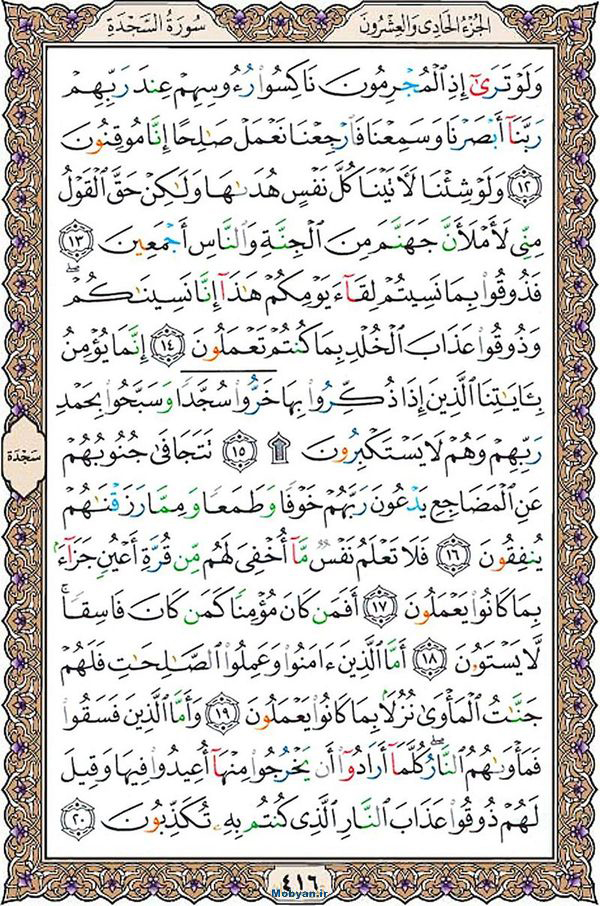 سُورَةُ السَّجْدَةِ
الجُزْءُ الحَادِي وَالعِشْرُونَ
وَلَوْ تَرَىٰٓ إِذِ ٱلْمُجْرِمُونَ نَاكِسُوا۟ رُءُوسِهِمْ عِندَ رَبِّهِمْ
رَبَّنَآ أَبْصَرْنَا وَسَمِعْنَا فَٱرْجِعْنَا نَعْمَلْ صَـٰلِحًا إِنَّا مُوقِنُونَ
١٢ وَلَوْ شِئْنَا لَـَٔاتَيْنَا كُلَّ نَفْسٍ هُدَىٰهَا وَلَـٰكِنْ حَقَّ ٱلْقَوْلُ
مِنِّى لَأَمْلَأَنَّ جَهَنَّمَ مِنَ ٱلْجِنَّةِ وَٱلنَّاسِ أَجْمَعِينَ ١٣
فَذُوقُوا۟ بِمَا نَسِيتُمْ لِقَآءَ يَوْمِكُمْ هَـٰذَآ إِنَّا نَسِينَـٰكُمْ ۖ
وَذُوقُوا۟ عَذَابَ ٱلْخُلْدِ بِمَا كُنتُمْ تَعْمَلُونَ ١٤ إِنَّمَا يُؤْمِنُ
بِـَٔايَـٰتِنَا ٱلَّذِينَ إِذَا ذُكِّرُوا۟ بِهَا خَرُّوا۟ سُجَّدًا وَسَبَّحُوا۟ بِحَمْدِ
رَبِّهِمْ وَهُمْ لَا يَسْتَكْبِرُونَ ۩ ١٥ تَتَجَافَىٰ جُنُوبُهُمْ
عَنِ ٱلْمَضَاجِعِ يَدْعُونَ رَبَّهُمْ خَوْفًا وَطَمَعًا وَمِمَّا رَزَقْنَـٰهُمْ
يُنفِقُونَ ١٦ فَلَا تَعْلَمُ نَفْسٌ مَّآ أُخْفِىَ لَهُم مِّن قُرَّةِ أَعْيُنٍ جَزَآءًۢ
بِمَا كَانُوا۟ يَعْمَلُونَ ١٧ أَفَمَن كَانَ مُؤْمِنًا كَمَن كَانَ فَاسِقًا ۚ
لَّا يَسْتَوُۥنَ ١٨ أَمَّا ٱلَّذِينَ ءَامَنُوا۟ وَعَمِلُوا۟ ٱلصَّـٰلِحَـٰتِ فَلَهُمْ
جَنَّـٰتُ ٱلْمَأْوَىٰ نُزُلًۢا بِمَا كَانُوا۟ يَعْمَلُونَ ١٩ وَأَمَّا ٱلَّذِينَ فَسَقُوا۟
فَمَأْوَىٰهُمُ ٱلنَّارُ ۖ كُلَّمَآ أَرَادُوٓا۟ أَن يَخْرُجُوا۟ مِنْهَآ أُعِيدُوا۟ فِيهَا وَقِيلَ
لَهُمْ ذُوقُوا۟ عَذَابَ ٱلنَّارِ ٱلَّذِى كُنتُم بِهِۦ تُكَذِّبُونَ ٢٠
سَجْدَة
٤١٦
Mobyan.ir